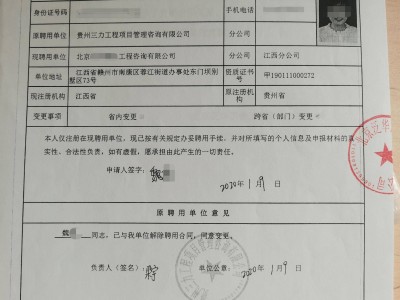 身份证号码 手机电话
原聘用单位 贵州三力工程项目管理咨询有限公司 分公司
现聘用单位 北京 工程咨询有限公司 分公司 江西分公司
单位地址 江西省赣州市南康区蓉江街道办事处东门坝别墅区73号 资质证书号 甲190111000272
现注册机构 江西省 原注册机构 贵州省
变更事项 省内变更 跨省（部门）变更
本人仅注册在现聘用单位，现已按有关规定办妥聘用手续，并对所填写的个人信息及申报材料的真
实性、合法性负责，如有虚假，愿承担由此产生的一切责任。
申请人签字： 魏 2020年1月9日
原聘用单位意见
魏 同志，已与我单位解除聘用合同，同意变更。
负责人（签名）： 单位公章： 2020年1月9日